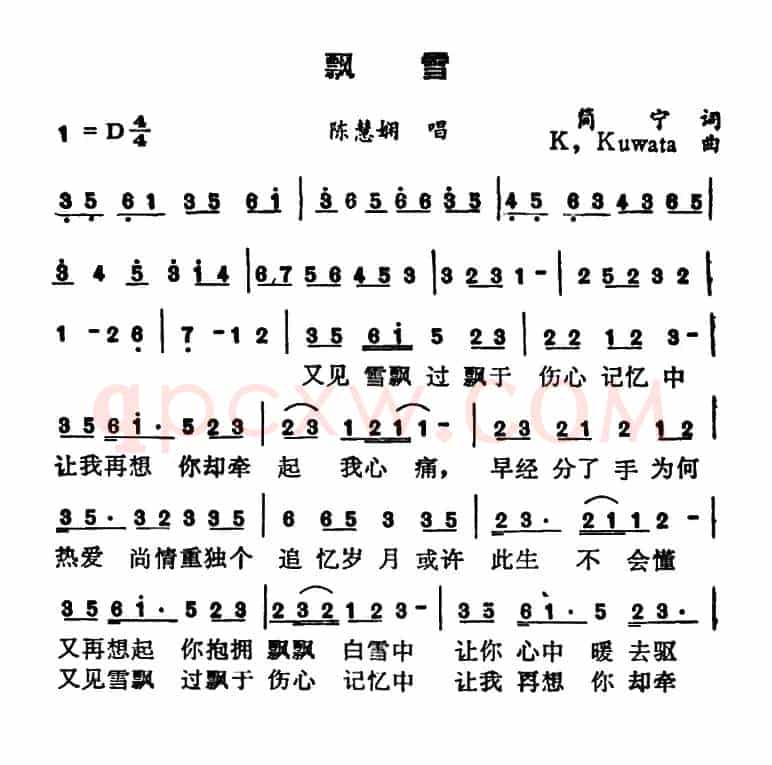 飘 雪
1 = D 4/4 陈慧娴 唱 简 宁 词
K, Kuwata 曲
3 5 6 1 3 5 6 i | 3 6 5 6 6 3 5 | 4 5 6 3 4 3 6 5 |
3 4 5 3 i 4 | 6,7 5 6 4 5 3 | 3 2 3 1 - | 2 5 2 3 2 |
1 - 2 6 | 7 - 1 2 | 3 5 6 i 5 2 3 | 2 2 1 2 3 - |
又见 雪飘 过 飘于 伤心 记忆 中
3 5 6 i · 5 2 3 | 2 3 1 2 1 1 - | 2 3 2 1 2 1 2 |
让我再想 你却牵 起 我心 痛, 早经 分了 手 为何
3 5 · 3 2 3 3 5 | 6 6 5 3 3 5 | 2 3 · 2 1 1 2 - |
热爱 尚情重独个 追 忆岁 月 或许 此生 不 会懂
3 5 6 i · 5 2 3 | 2 3 2 1 2 3 - | 3 5 6 1 · 5 2 3 |
又再想起 你抱拥 飘飘 白雪中 让你 心中 暖 去驱
又见雪飘 过飘于 伤心 记忆中 让我 再想 你 却牵
qpcxw.COM